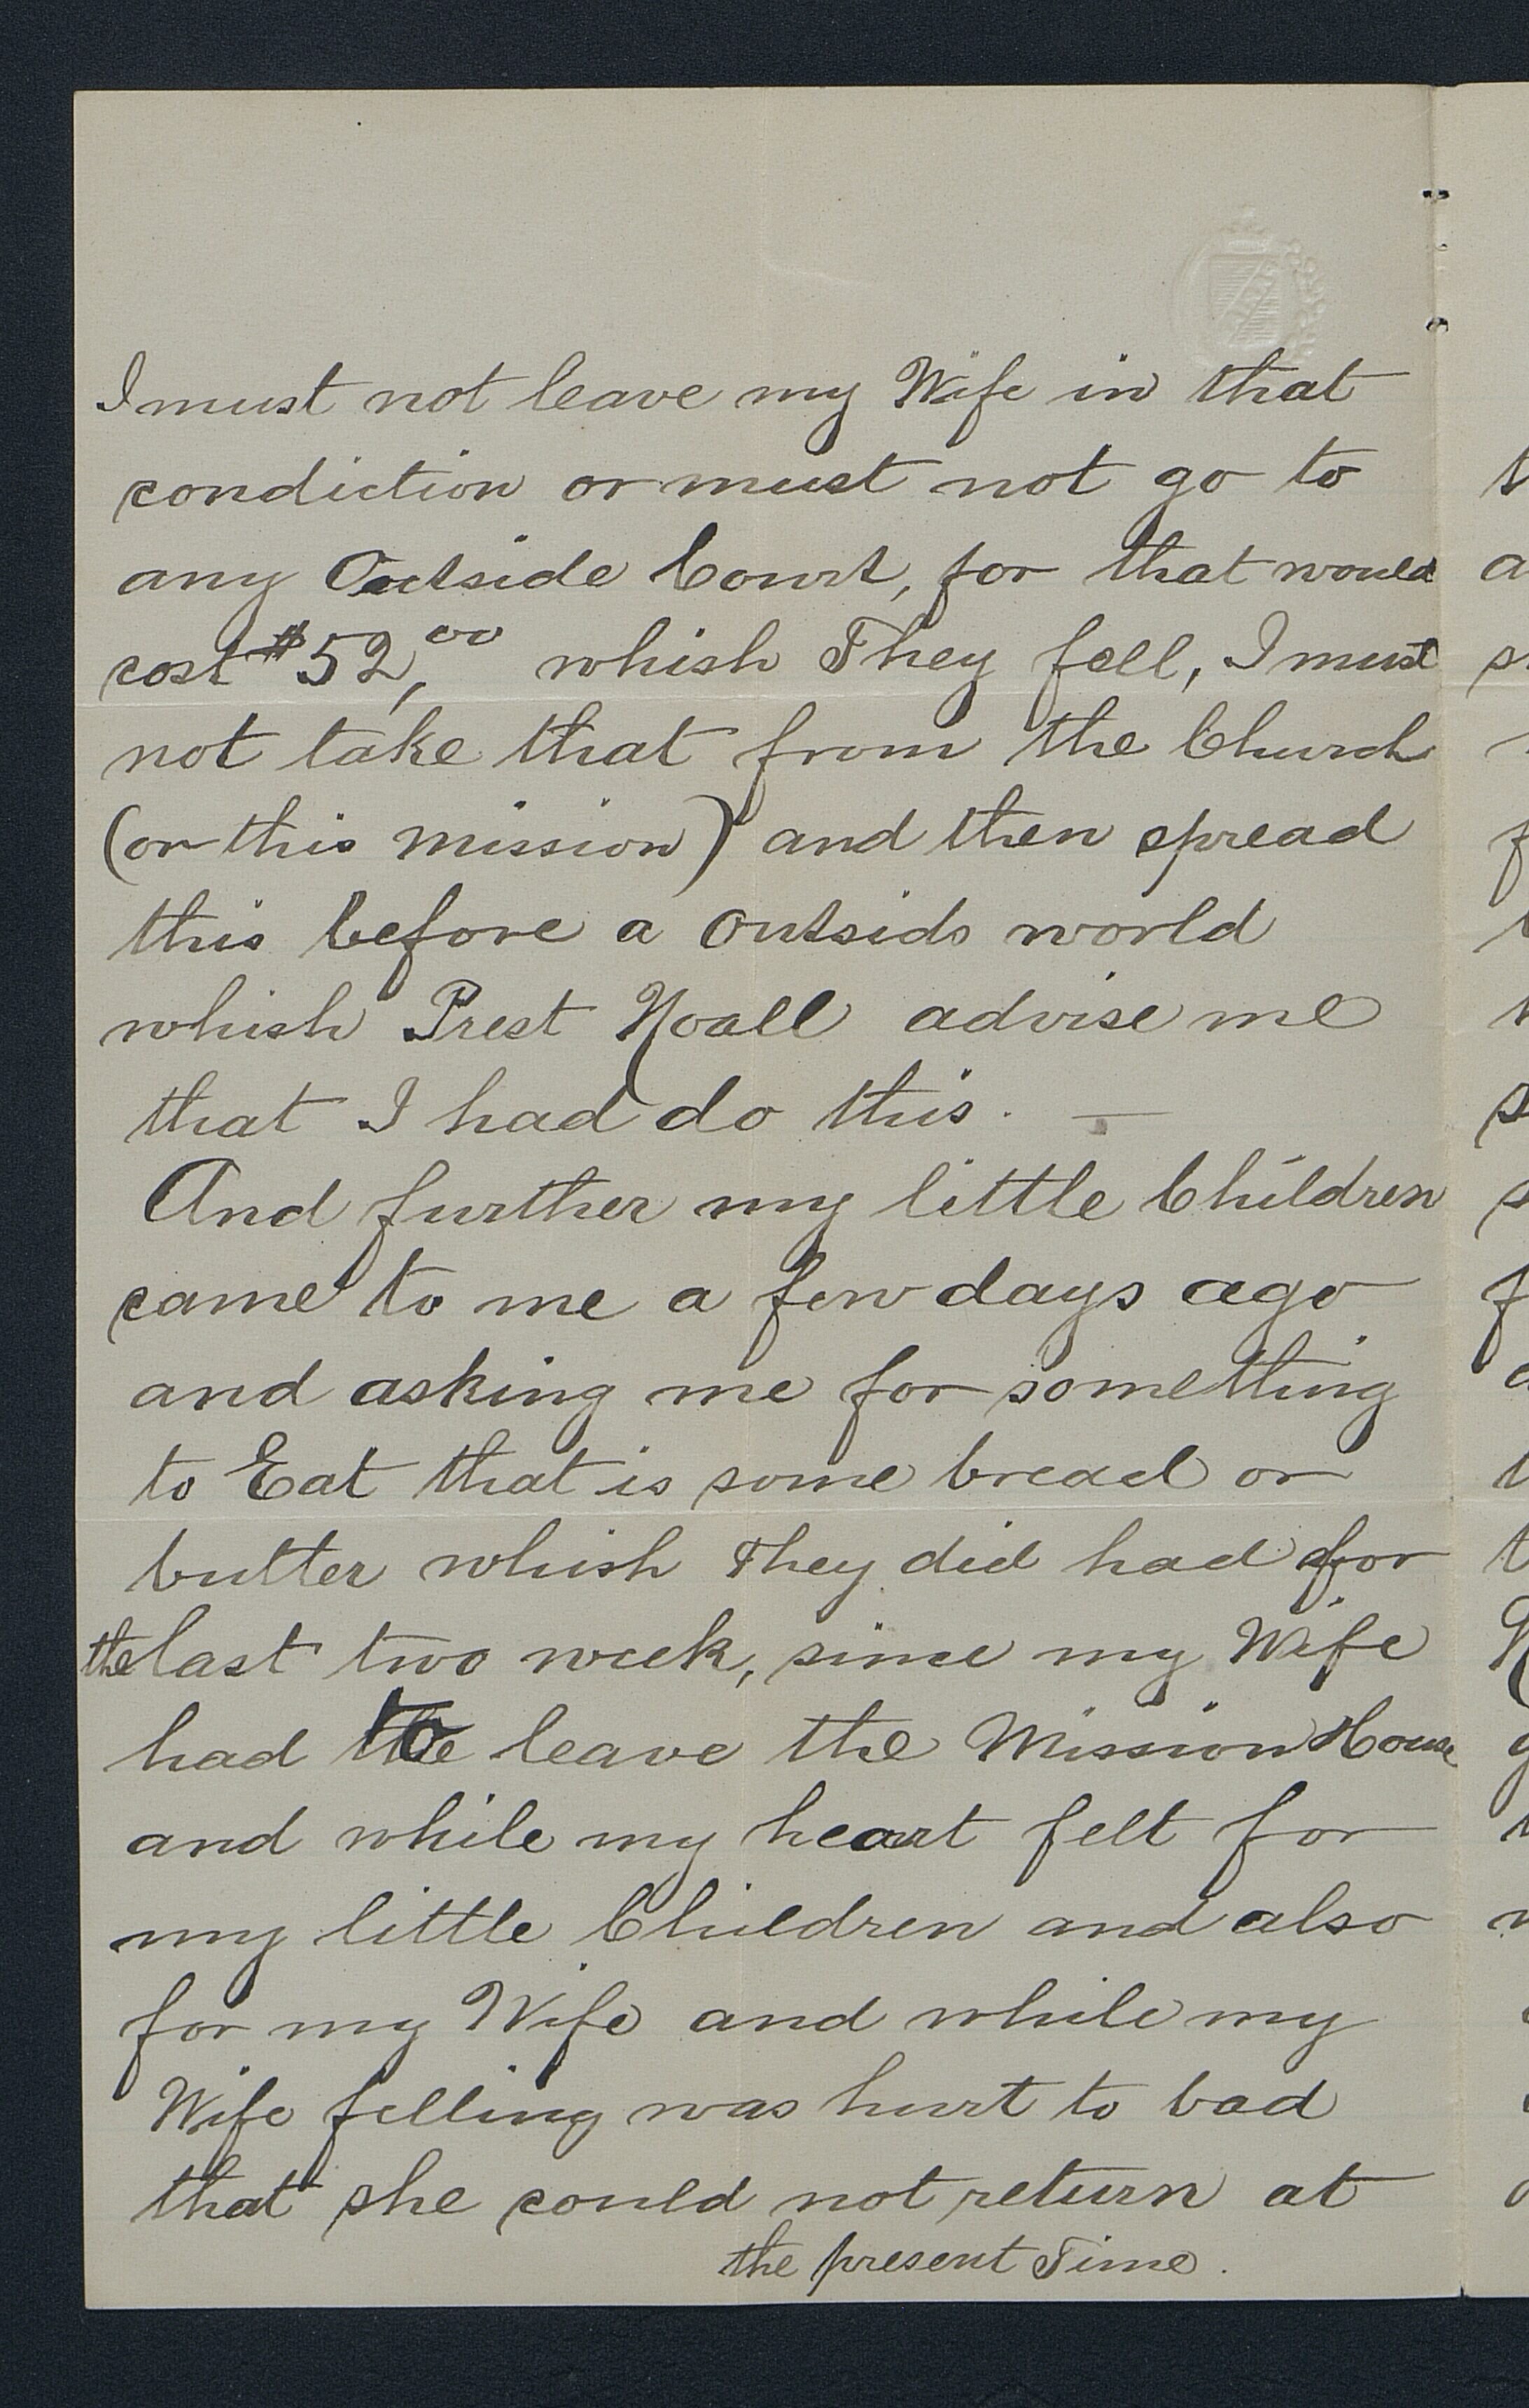 I must not leave my Wife in that
condiction or must not go to
any Outside Court, for that would
cost $52,00 whish They fell, I must
not take that from the Church
(or this mission) and then spread
this before a outside world
whish Prest Noall advise me
that I had do this. —
And further my little Children
came to me a few days ago
and asking me for something
to Eat that is some bread or
butter whish They did had for
the last two week, since my Wife
had to leave the Mission House
and while my heart felt for
my little Children and also
for my Wife and while my
Wife felling was hurt to bad
that she could not return at
the present Time.